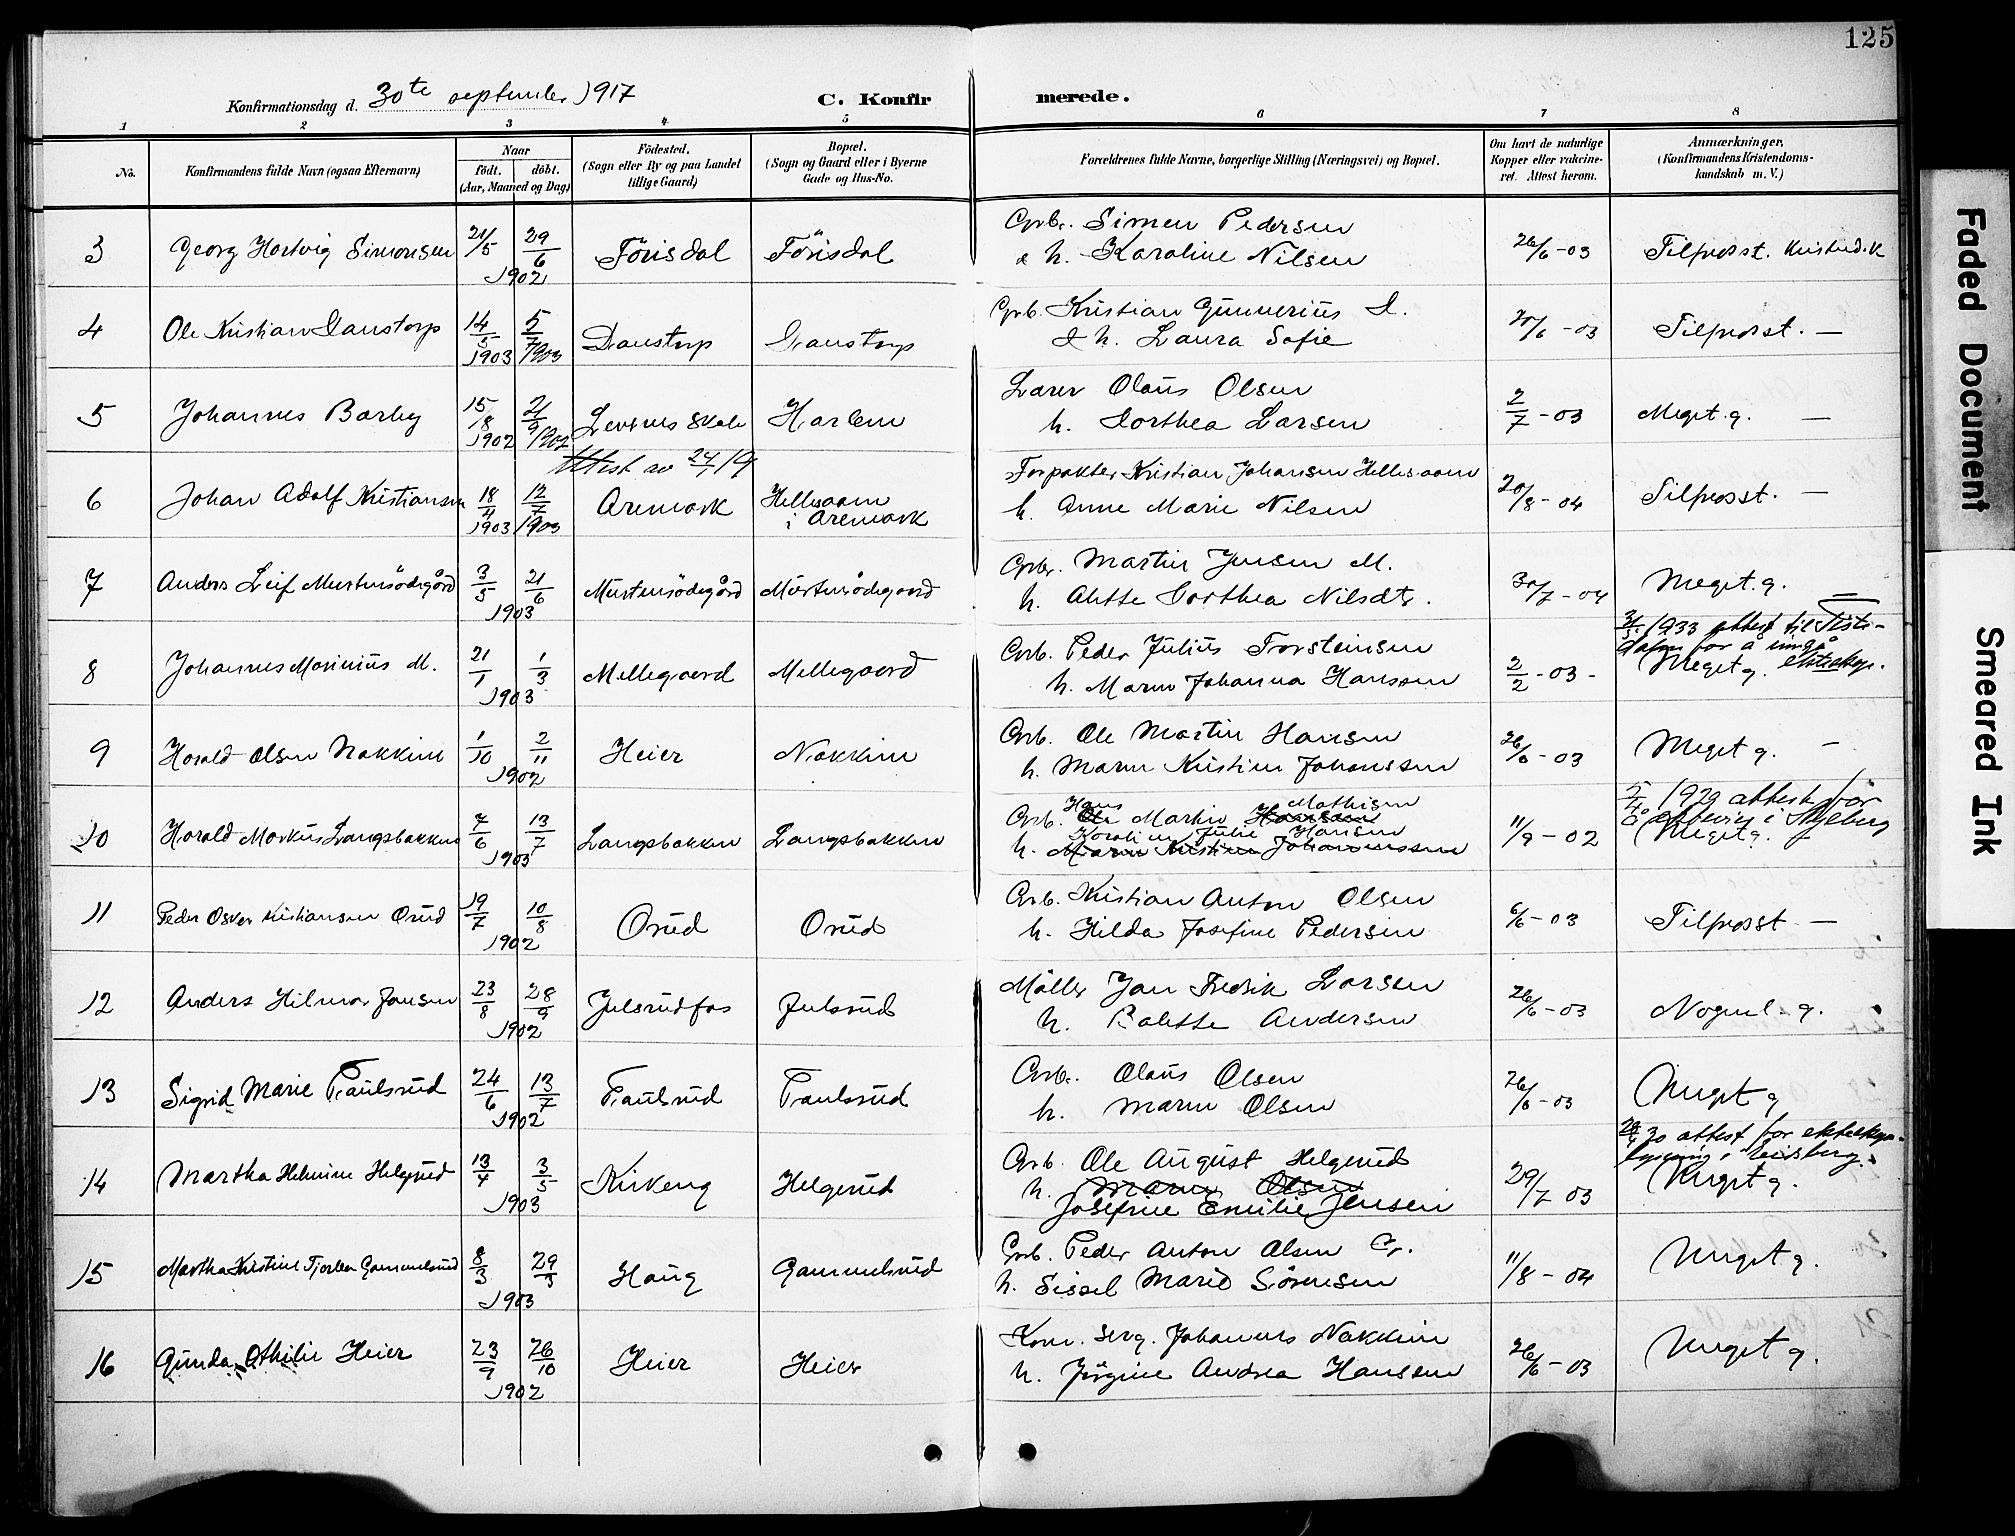 125
Konfirmationsdag d. 30te september 1917
C. Konfirmerede.
1 2 3 4 5 6 7 8
No. Konfirmandens fulde Navn (ogsaa Efternavn) Naar födt. döbt. (Aar, Maaned og Dag) Födested. (Sogn eller By og paa Landet tillige Gaard) Bopæl. (Sogn og Gaard eller i Byerne Gade og Hus-No. Forældrenes fulde Navne, borgerlige Stilling (Næringsvei) og Bopæl. Om havt de naturlige Kopper eller vakcineret. Attest herom. Anmærkninger. (Konfirmandens Kristendomskundskab m. V.)
3 Georg Hartvig Simonsen 21/5 29/6 1902 Förisdal Förisdal Grbr. Simen Pedersen & h. Karoline Nilsen 26/6-03 Tilfredsst. Kristend.k
4 Ole Kristian Danstorp 14/5 1903 5/7 1903 Danstorp Danstorp Grb. Kristian Gunnerius D. & h. Laura Sofie 20/6-03 Tilfredsst. —
5 Johannes Barby 15/8 1902 21/9 1902 Harlem Lærer Olaus Olsen h. Dorthea Larsen 2/7-03 Meget g. —
Attest av 24/1 19
6 Johan Adolf Kristiansen 18/4 1903 12/7 1903 Aremark Hellesaaen i Aremark Forpakter Kristian Johansen Hellesaaen h. Anne Marie Nilsen 20/8-04 Tilfredsst. —
7 Anders Leif Murtnesödegård 3/5 21/6 1903 Murtnesödegård Murtnesödegaard Grbr. Martin Jensen M. h. Alette Dorthea Nilsdtr. 30/7-04 Meget g. —
8 Johannes Marinius M. 21/1 1/3 1903 Mellegaard Mellegaard Grb. Peder Julius Torsteinsen h. Maren Johanna Hanssen 2/2-03- 1933 attest til for å inngå ekteskap. Meget g.
9 Harald Olsen Nakkim 1/10 2/11 1902 Heier Nakkim Grb. Ole Martin Hansen h. Maren Kristine Johanssen 26/6-03 Meget g. —
10 Harald Markus Langsbakken 7/6 13/7 1903 Langsbakken Langsbakken Grb. Hans Martin Mathisen h. Karoline Julie Hansen 11/9-02 5/4 1929 attest for i Meget g.
11 Peder Oskar Kristiansen Orud 19/7 10/8 1902 Orud Orud Grb. Kristian Anton Olsen h. Hilda Josefine Pedersen 6/6-03 Tilfredsst —
12 Anders Hilmar Jansen 23/8 28/9 1902 Julsrudfos Julsrud Möller Jan Fredrik Larsen h. Balette Andersen 26/6-03 Nogenl. g.
13 Sigrid Marie Paulsrud 24/6 13/7 1902 Paulsrud Paulsrud Grb. Olaus Olsen h. Maren Olsen 26/6-03 Meget g
14 Martha Helmine Helgerud 13/4 3/5 1903 Kirkeng Helgerud Grb. Ole August Helgerud h. Maren Olsen Josefine Emilie Jensen 29/7 03 30 attest for ekteskaps- lysning i Meget g.
15 Martha Kristine Gammelsrud 8/3 29/3 1903 Haug Gammelsrud Grb. Peder Anton Olsen G. h. Sissel Marie Sörensen 11/8-04 Meget g.
16 Gunda Othilie Heier 23/9 26/10 1902 Heier Heier Korn. Serg. Johannes Nakkim h. Jörgine Andrea Hanssen 26/6-03 Meget g.
Faded Document
Smeared Ink